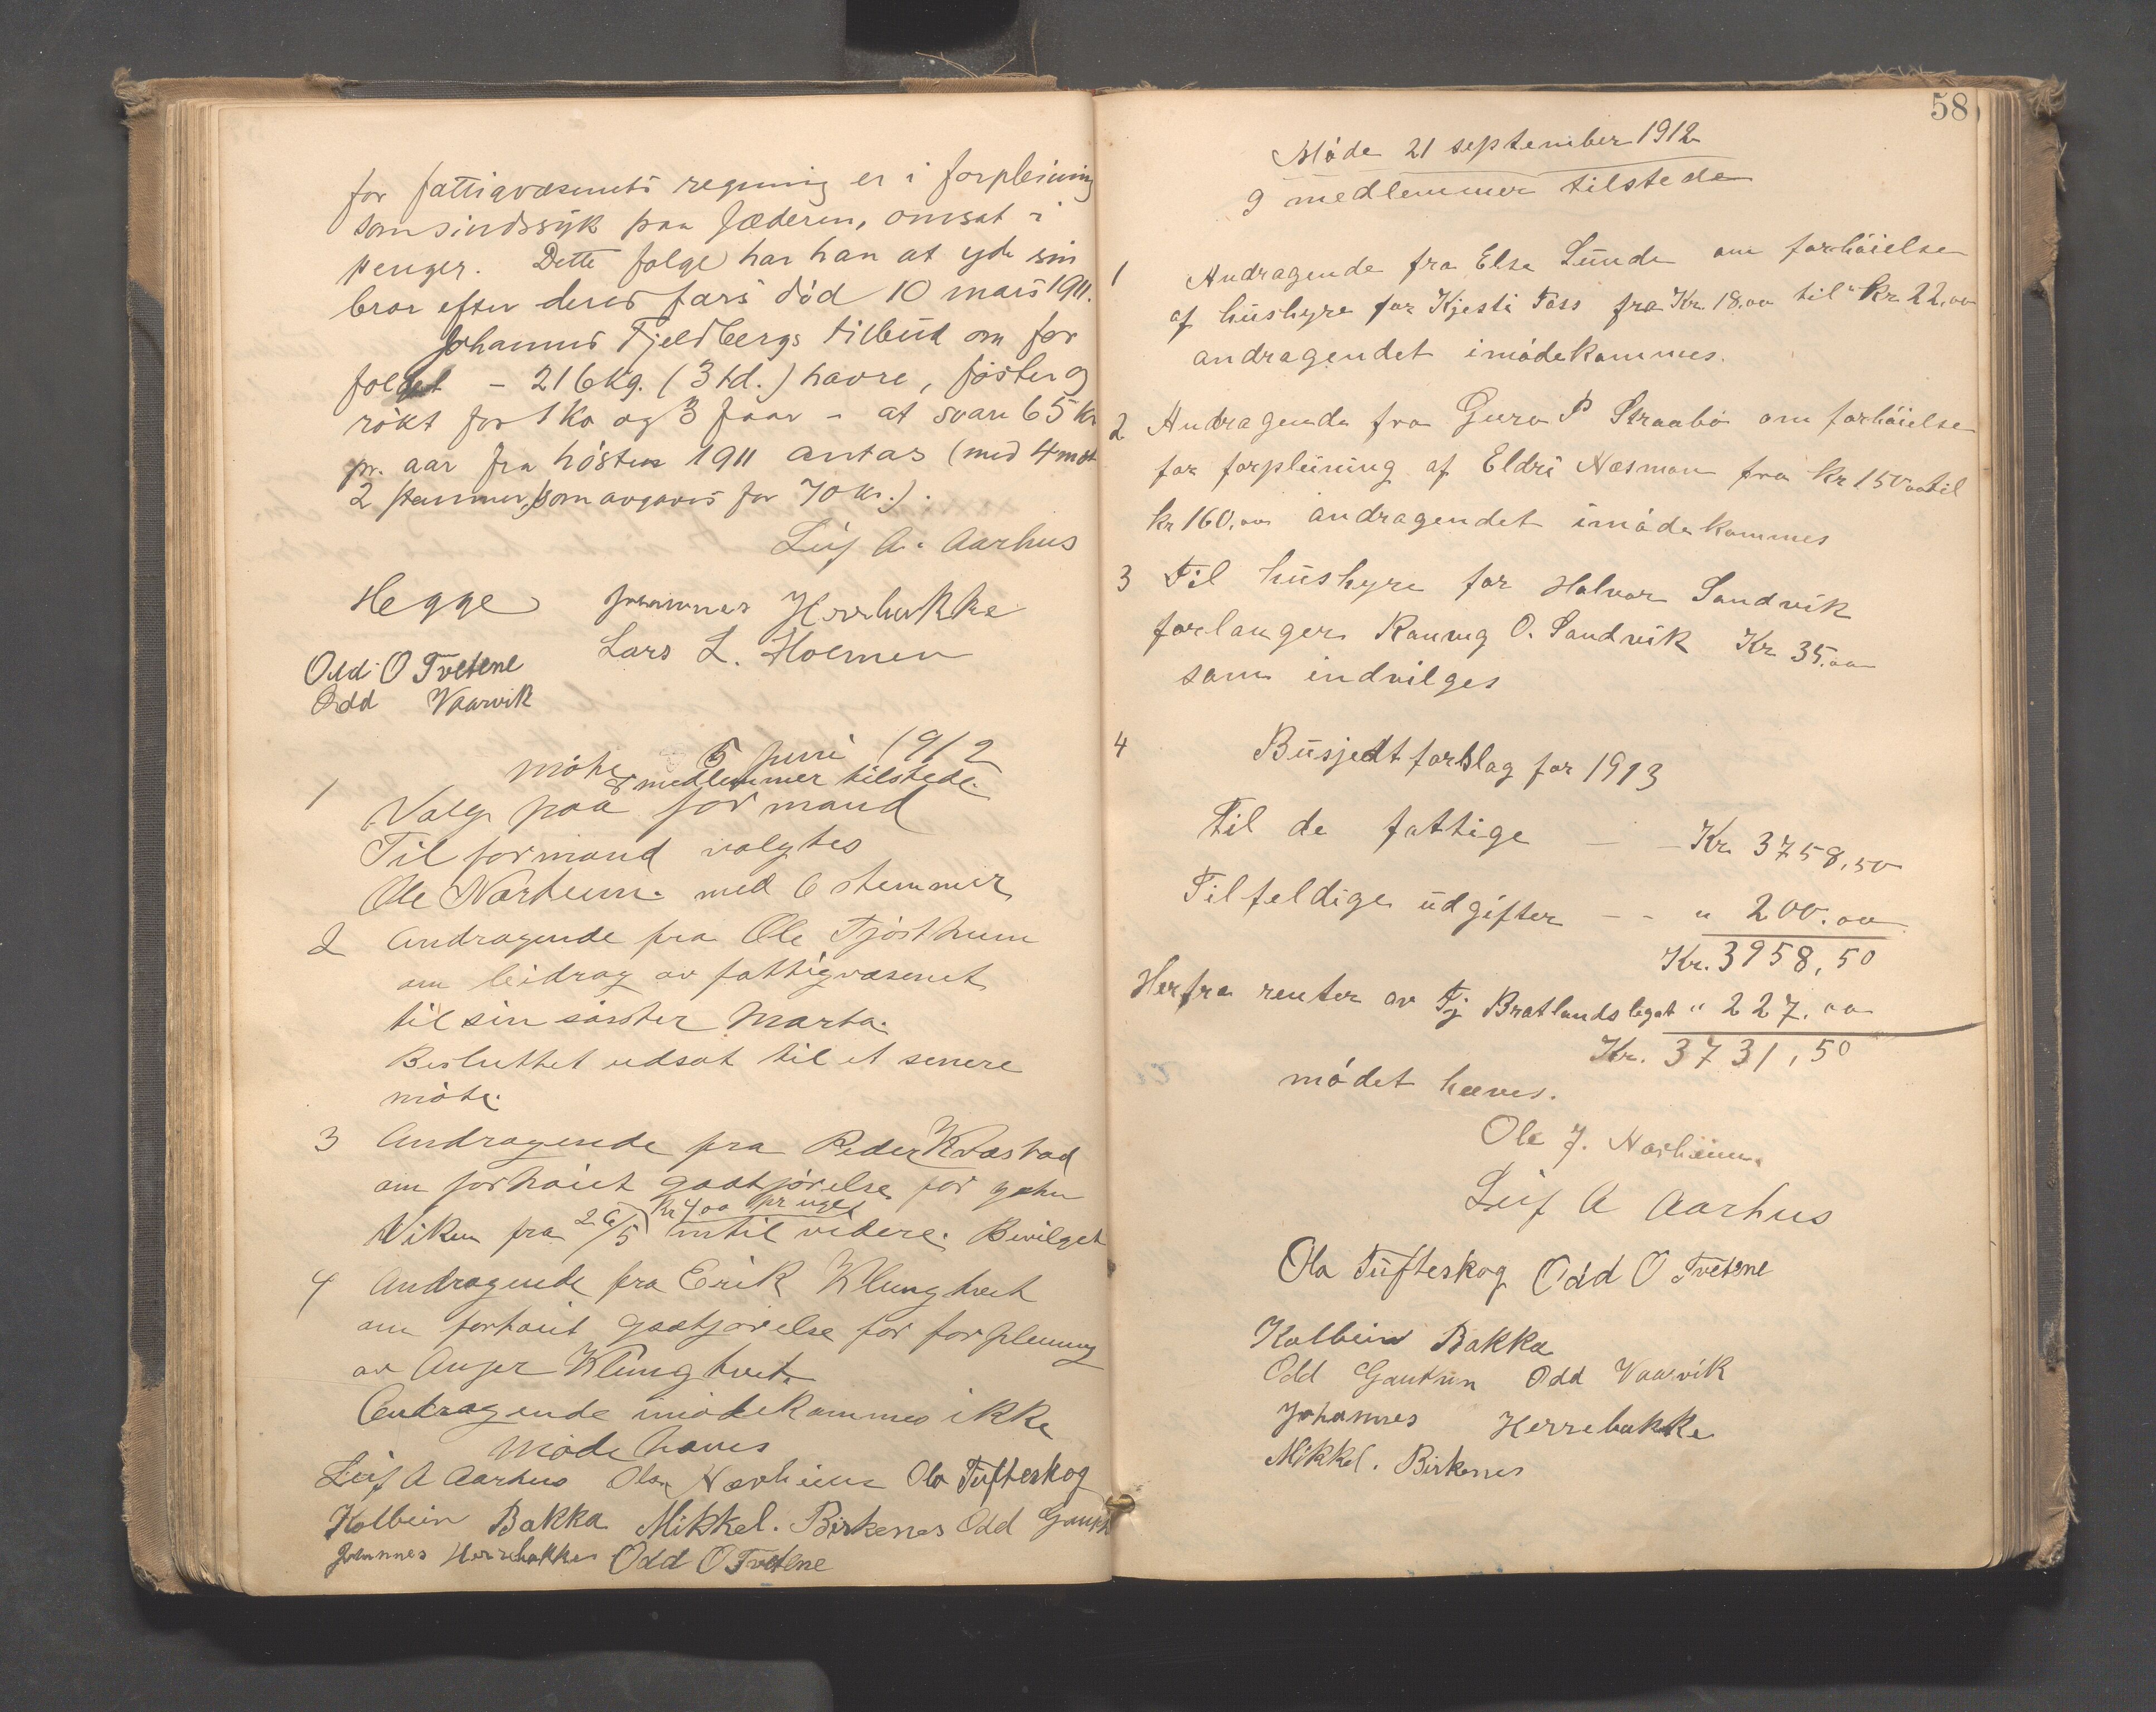 for fattigvæsenets regning er i forpleining
som sindssyk paa Jæderen, omsat i
penger. Dette folge har han at yde sin
bror efter deres fars död 10 mars 1911.
Johannes Fjeldbergs tilbud om for
folget - 216 kg. (3 td.) havre, foster og
rökt for 1 ko og 3 faar - at svare 65 kr
pr. aar fra hösten 1911 antas (med 4 mot
2 stemmer, som avgaves for 70 kr.).
Leif A. Aarhus
Hegge Johannes Herrebakke
Lars L. Holmen
Odd O Tvetene
Odd Vaarvik
möte 5 Juni 1912
8 medlemmer tilstede.
1 Valg paa formand
Til formand valgtes
Ole Norheim. med 6 stemmer
2 Andragende fra Ole Tjostheim
om bidrag av fattigvæsenet
til sin söster Marta.
Besluttet udsat til et senere
möte.
3 Andragende fra Peder Kvæstad
om forhöiet godtjörelse for
kr 4,00 pr uge
Viken fra 26/5 intil videre. Bevilget
4 Andragende fra Erik Klungtveit
om forhöiet godtjörelse for forpleining
av Klungtveit.
Andragende imödekommes ikke
Möde hæves
Leif A Aarhus Ola Norheim Ola Tufteskog
Kolbein Bakka Mikkel. Birkenes Odd
Johannes Herrebakke Odd O Tvetene
58
Möde 21 september 1912
9 medlemmer tilstede
1 Andragende fra Else Lunde om forhöielse
af hushyre for Kjesti Foss fra Kr. 18,00 til kr. 22,00
andragendet imödekommes.
2 Andragende fra Guro P Straabö om forhöielse
for forpleining af Eldri Næsmon fra kr 150,00 til
kr 160,00 andragendet imödekommes
3 Til hushyre for Halvor Sandvik
forlanger Ranveig O. Sandvik Kr. 35.00
som indvilges
4 Busjedt forslag for 1913
Til de fattige — — Kr. 3758,50
Tilfeldige udgifter — - " 200.00
Kr. 3958,50
Herfra renter av Tj Bratlandslegat " 227.00
Kr. 3731,50
mödet hæves.
Ole J. Norheim.
Leif A Aarhus
Ola Tufteskog Odd O Tvetene
Kolbein Bakka
Odd Gautun Odd Vaarvik
Johannes Herrebakke
Mikkel. Birkenes